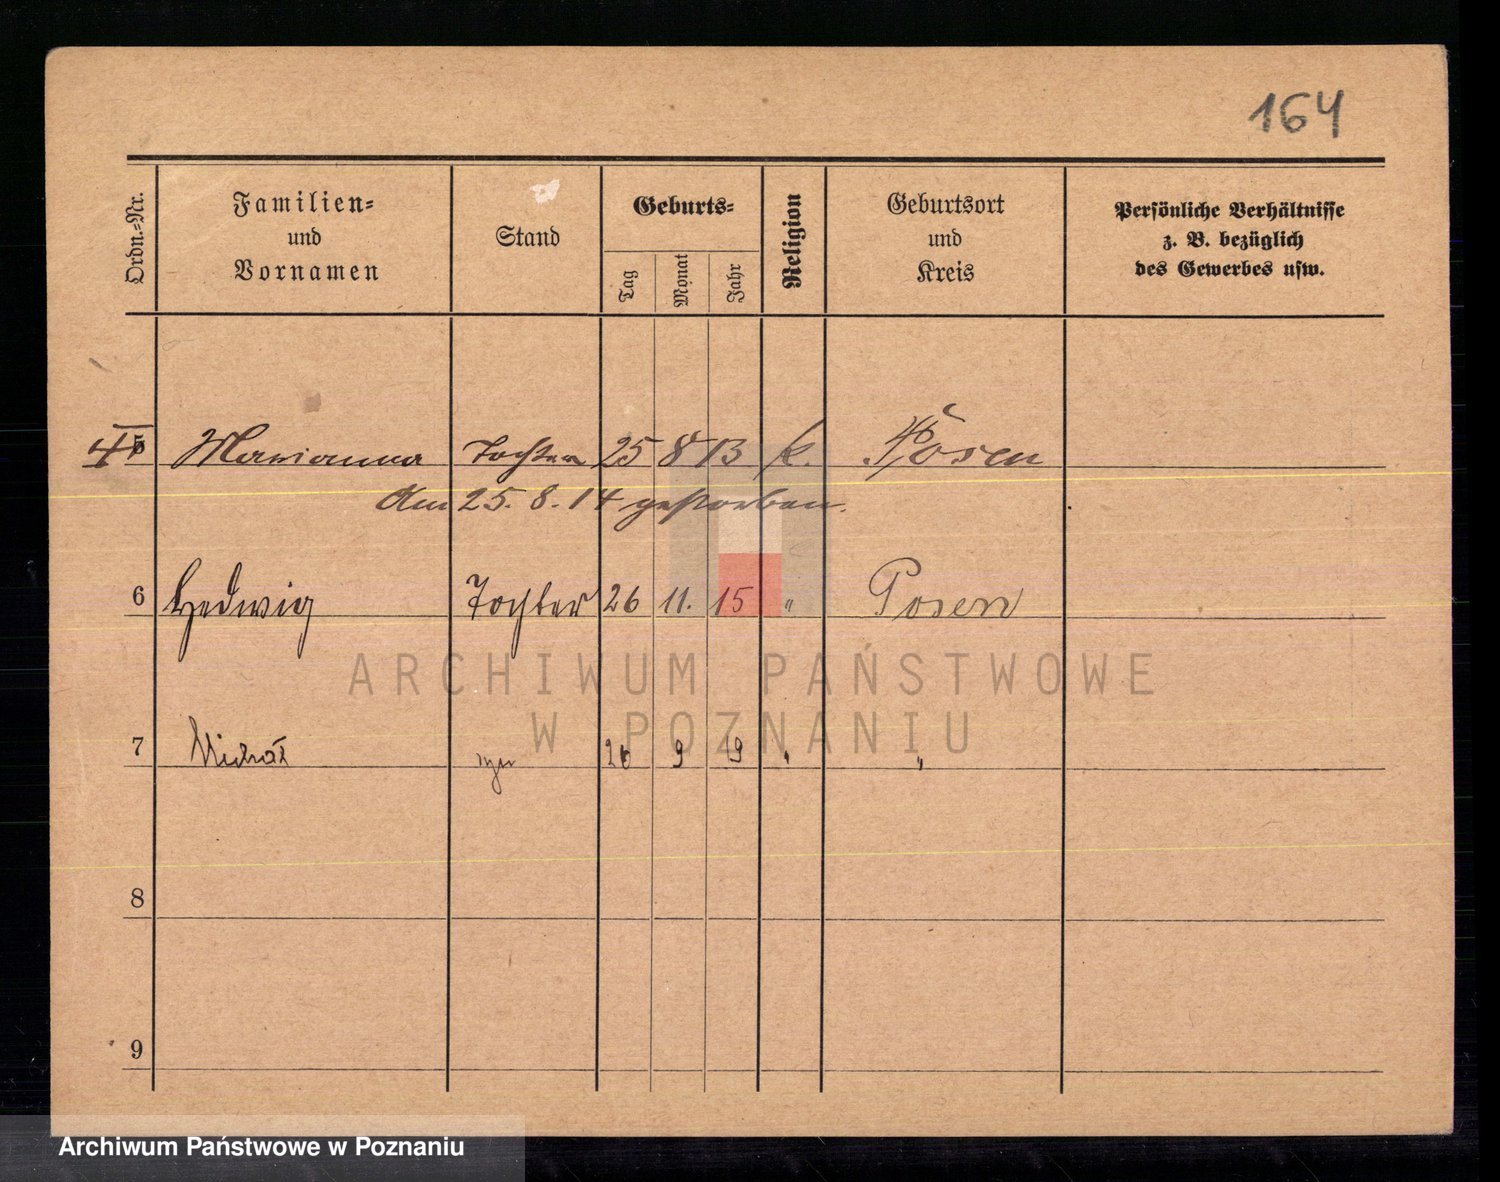 164
Ordn.-Nr. Familien- und Vornamen Stand Geburts- Tag Monat Jahr Religion Geburtsort und Kreis Persönliche Verhältnisse z. B. bezüglich des Gewerbes usw.
5 Marianna Tochter 25 8 13 k. Posen
Am 25. 8. 14 gestorben.
6 Hedwig Tochter 26 11. 15 " Posen
ARCHIWUM PAŃSTWOWE
W POZNANIU
7 Michał syn 26 9 19 " "
8
9
Archiwum Państwowe w Poznaniu